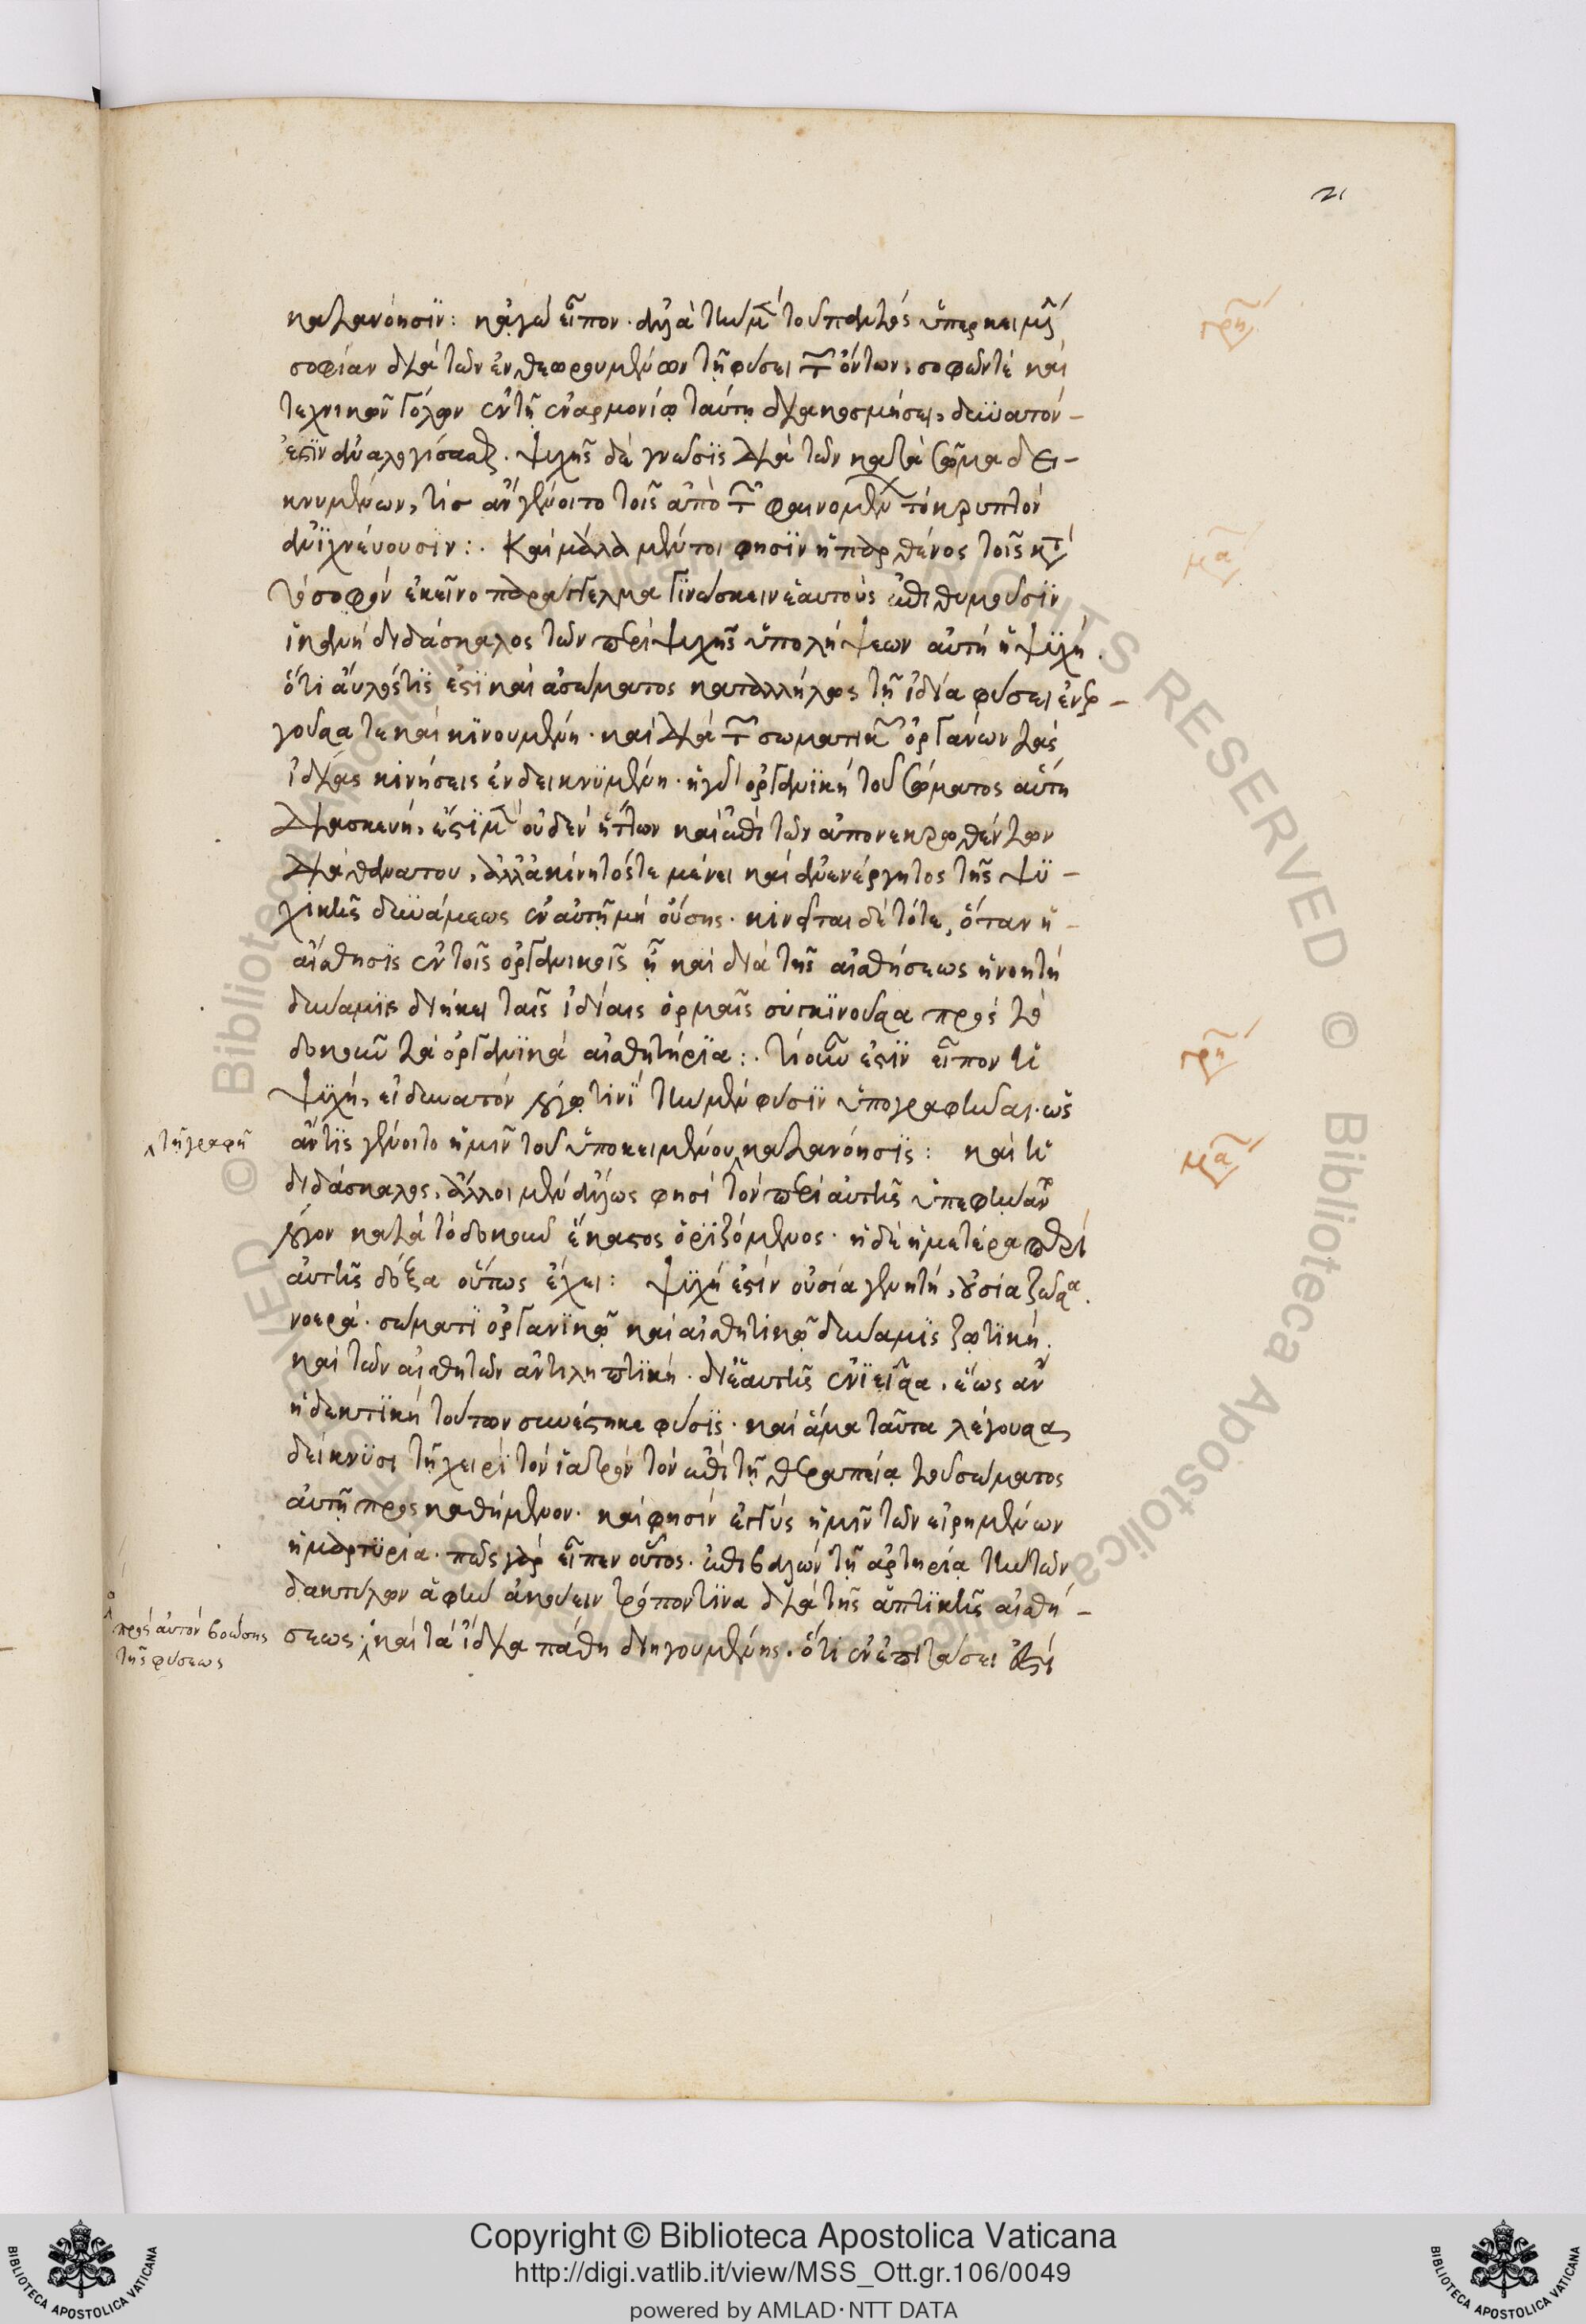 21
κατανόησιν: κἀγὼ εἶπον· ἀλλὰ τὴν μὲν τοῦ παντὸς ὑπερκειμένην
σοφίαν διὰ τῶν ἐνθεωρουμένων τῇ φύσει τῶν ὄντων, σοφῶν τε καὶ
τεχνικῶν λόγων ἐν τῇ ἐναρμονίῳ ταύτῃ διακοσμήσει, δυνατόν
ἐστιν ἀναλογίσασθαι. ψυχῆς δὲ γνῶσις διὰ τῶν κατὰ σῶμα δει-
κνυμένων, τίς ἂν γένοιτο τοῖς ἀπὸ τῶν φαινομένων τὸ κρυπτὸν
ἀνιχνεύουσιν:. Καὶ μάλα μέντοι φησὶν ἡ παρθένος τοῖς κατὰ
τὸ σοφὸν ἐκεῖνο παράγγελμα γινώσκειν ἑαυτοὺς ἐπιθυμοῦσιν
ἱκανὴ διδάσκαλος τῶν περὶ ψυχῆς ὑπολήψεων αὐτὴ ἡ ψυχή.
ὅτι ἄϋλός τίς ἐστι καὶ ἀσώματος καταλλήλως τῇ ἰδίᾳ φύσει ἐνερ-
γοῦσά τε καὶ κινουμένη· καὶ διὰ τῶν σωματικῶν ὀργάνων τὰς
ἰδίας κινήσεις ἐνδεικνυμένη· ἡ γὰρ ὀργανικὴ τοῦ σώματος αὕτη
διασκευή, ἔστι μὲν οὐδὲν ἧττον καὶ ἐπὶ τῶν ἀπονεκρωθέντων
διὰ θανάτου, ἀλλ' ἀκίνητός τε μένει καὶ ἀνενέργητος τῆς ψυ-
χικῆς δυνάμεως ἐν αὐτῇ μὴ οὔσης· κινεῖται δὲ τότε, ὅταν ἡ
αἴσθησις ἐν τοῖς ὀργανικοῖς ᾖ καὶ διὰ τῆς αἰσθήσεως ἡ νοητὴ
δύναμις διήκει ταῖς ἰδίαις ὁρμαῖς συγκινοῦσα πρὸς τὸ
δοκοῦν τὰ ὀργανικὰ αἰσθητήρια:. τί οὖν ἐστὶν εἶπον ἡ
ψυχή, εἰ δυνατὸν λόγῳ τινὶ τὴν μὲν φύσιν ὑπογραφῆναι· ὡς
ἄν τις γένοιτο ἡμῖν τοῦ ὑποκειμένου κατανόησις: καὶ ἡ
διδάσκαλος, ἄλλοι μὲν ἄλλως φησὶ τὸν περὶ αὐτῆς ἀπεφήναντο
λόγον κατὰ τὸ δοκοῦν ἕκαστος ὁριζόμενος· ἡ δὲ ἡμετέρα περὶ
αὐτῆς δόξα οὕτως ἔχει: ψυχή ἐστιν οὐσία γενητή, οὐσία ζῶσα.
νοερά· σώματι ὀργανικῷ καὶ αἰσθητικῷ δύναμις ζωτική.
καὶ τῶν αἰσθητῶν ἀντιληπτική· δι' ἑαυτῆς ἐνιεῖσα, ἕως ἂν
ἡ δεκτικὴ τούτων συνέστηκε φύσις· καὶ ἅμα ταῦτα λέγουσα
δείκνυσι τῇ χειρὶ τὸν ἰατρὸν τὸν ἐπὶ τῇ θεραπείᾳ τοῦ σώματος
αὐτῇ προσκαθήμενον· καί φησιν ἐγγὺς ἡμῖν τῶν εἰρημένων
ἡ μαρτυρία· πῶς γὰρ εἶπεν οὗτος· ἐπιβαλὼν τῇ ἀρτηρίᾳ τὴν τῶν
δακτύλων ἁφὴν ἀκούειν τρόπον τινὰ διὰ τῆς ἁπτικῆς αἰσθή-
σεως· καὶ τὰ ἴδια πάθη διηγουμένης· ὅτι ἐν ἐπιτάσει ἐστὶ
τῇ γραφῇ
πρὸς αὐτὸν βοώσης
τῆς φύσεως
γρη
μα
γρη
μα
Copyright © Biblioteca Apostolica Vaticana
http://digi.vatlib.it/view/MSS_Ott.gr.106/0049
powered by AMLAD·NTT DATA
BIBLIOTECA APOSTOLICA VATICANA
BIBLIOTECA APOSTOLICA VATICANA